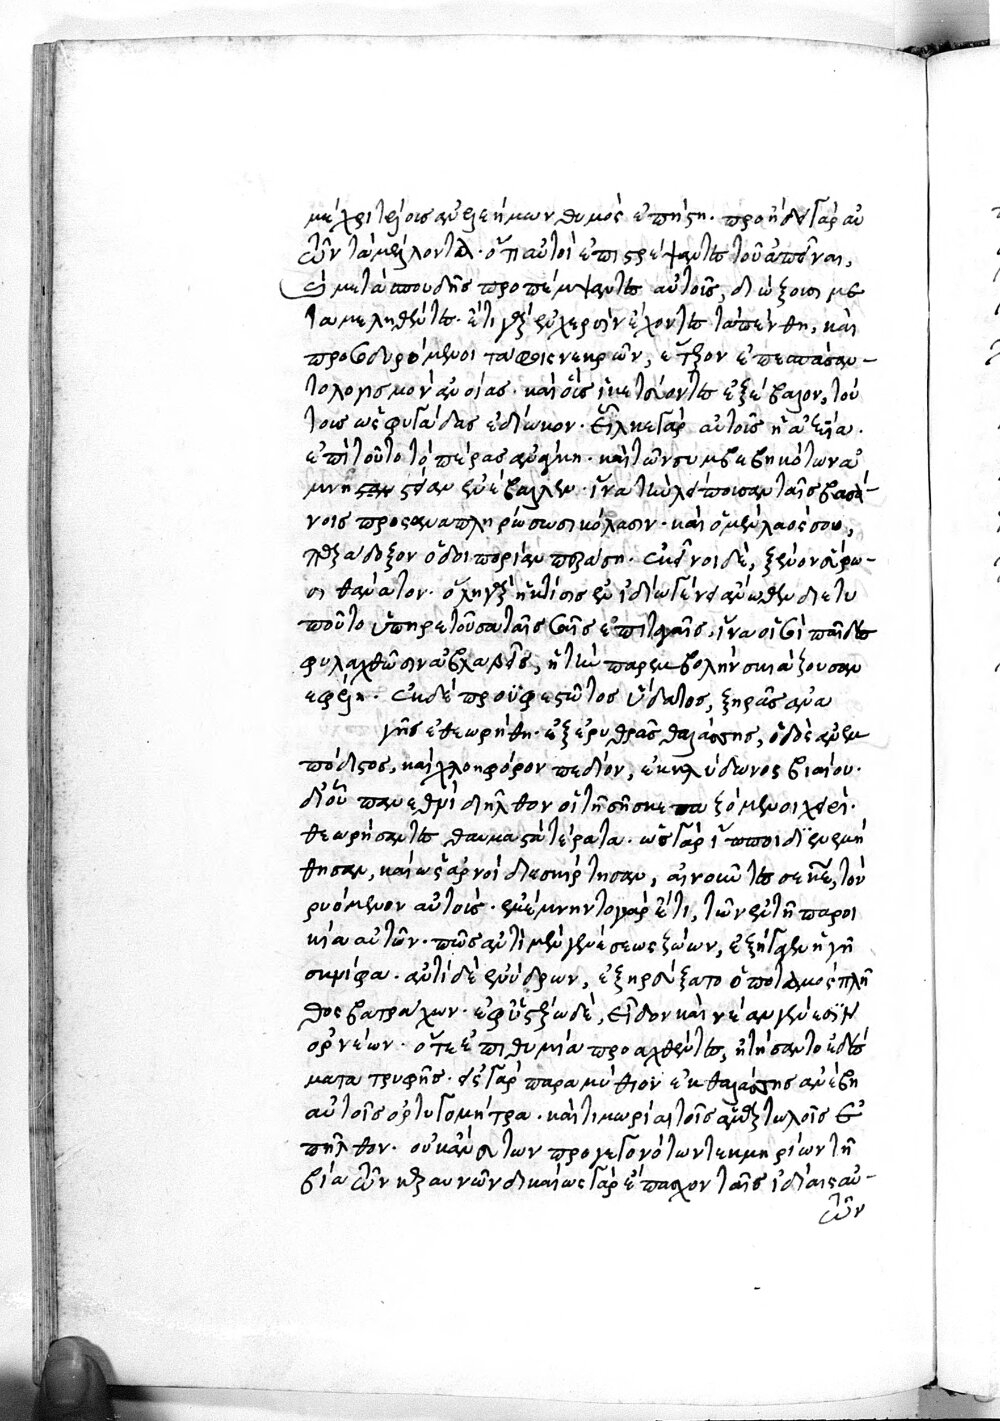 μέχρι τέλους ἀνελεήμων θυμὸς ἐπέστη· προῄδει γὰρ αὐ
τῶν τὰ μέλλοντα· ὅτι αὐτοὶ ἐπιστρέψαντες τοῦ ἀπεῖναι,
καὶ μετὰ σπουδῆς προπέμψαντες αὐτοὺς, διώξουσι με
ταμεληθέντες· ἔτι γὰρ ἐν χερσὶν ἔχοντες τὰ πένθη, καὶ
προσοδυρόμενοι τάφοις νεκρῶν, ἕτερον ἐπεσπάσαν-
το λογισμὸν ἀνοίας· καὶ οὓς ἱκετεύοντες ἐξέβαλον, τού
τους ὡς φυγάδας ἐδίωκον· εἷλκε γὰρ αὐτοὺς ἡ ἀξία·
ἐπὶ τοῦτο τὸ πέρας ἀνάγκη· καὶ τῶν συμβεβηκότων ἀ
μνηστείαν ἐνέβαλεν· ἵνα τὴν λείπουσαν ταῖς βασά-
νοις προσαναπληρώσωσι κόλασιν· καὶ ὁ μὲν λαός σου,
παράδοξον ὁδοιπορίαν περάσῃ· ἐκεῖνοι δὲ, ξένον εὕρω-
σι θάνατον· ὅλη γὰρ ἡ κτίσις ἐν ἰδίῳ γένει ἄνωθεν διετυ
ποῦτο ὑπηρετοῦσα ταῖς σαῖς ἐπιταγαῖς, ἵνα οἱ σοὶ παῖδες
φυλαχθῶσιν ἀβλαβεῖς, ἡ τὴν παρεμβολὴν σκιάζουσα ν
εφέλη· ἐκ δὲ προϋφεστῶτος ὕδατος, ξηρᾶς ἀνα
γῆς ἐθεωρήθη· ἐξ ἐρυθρᾶς θαλάσσης, ὁδὸς ἀνεμ
πόδιστος, καὶ χλοηφόρον πεδίον, ἐκ κλύδωνος βιαίου·
δι' οὗ πανεθνὶ διῆλθον οἱ τῇ σῇ σκεπαζόμενοι χειρὶ·
θεωρήσαντες θαυμαστὰ τέρατα· ὡς γὰρ ἵπποι διενεμή
θησαν, καὶ ὡς ἀρνοὶ διεσκίρτησαν, αἰνοῦντές σε κύριε, τὸν
ῥυόμενον αὐτούς· ἐμέμνηντο γὰρ ἔτι, τῶν ἐν τῇ παροι
κίᾳ αὐτῶν· πῶς ἀντὶ μὲν γενέσεως ζώων, ἐξήγαγεν ἡ γῆ
σκνίφα· ἀντὶ δὲ ἐνύδρων, ἐξηρεύξατο ὁ ποταμὸς πλῆ
θος βατράχων· ἐφ' ὑστέρῳ δὲ, εἶδον καὶ νέαν γένεσιν
ὀρνέων· ὅτε ἐπιθυμίᾳ προαχθέντες, ᾐτήσαντο ἐδέσ
ματα τρυφῆς· εἰς γὰρ παραμύθιον ἐκ θαλάσσης ἀνέβη
αὐτοῖς ὀρτυγομήτρα· καὶ τιμωρίαι τοῖς ἁμαρτωλοῖς ἐ
πῆλθον· οὐκ ἄνευ τῶν προγεγονότων τεκμηρίων τῇ
βίᾳ τῶν κεραυνῶν δικαίως γὰρ ἔπασχον ταῖς ἰδίαις αὐ-
τῶν